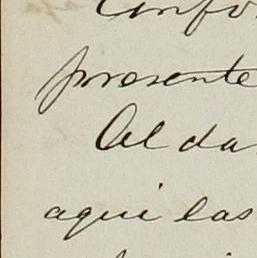 Confo
presente
Al da
aqui las